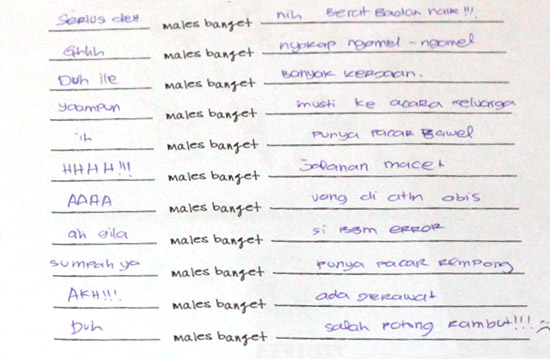 Serius deh males banget nih Berat Badan naik !!!
Ghhh males banget nyokap ngomel - ngomel
Duh ile males banget Banyak kerjaan.
yaampun males banget musti ke acara keluarga
ih males banget punya pacar Bawel
HHHH!!! males banget Jalanan macet
AAAA males banget uang di atm abis
ah gila males banget si BBM ERROR
sumpah ya males banget punya pacar Rempong
AKH!!! males banget ada Jerawat
Duh males banget salah potong rambut!!! :(